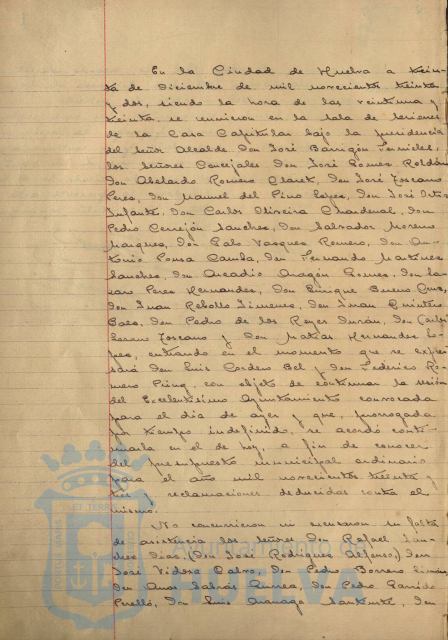 En la Ciudad de Huelva a trein-
ta de Diciembre de mil novecientos treinta
y dos, siendo la hora de las veintiuna y
treinta, se reunieron en la sala de sesiones
de la Casa Capitular bajo la presidencia
del Señor Alcalde Don José Barrigón Fornieles,
los Señores Concejales don José Gomez Roldán,
don Abelardo Romero Claret, don José Toscano
Perez, don Manuel del Pino Lopez, don José Ortiz
Infante, don Carlos Oliveira Chardenal, don
Pedro Cerrejón Sanchez, don Salvador Moreno
Marquez, don Galo Vazquez Romero, don An-
tonio Pousa Camba, don Fernando Martinez
Sanchez, don Arcadio Aragón Gomez, don La-
zaro Perez Hernandez, don Enrique Bueno Cruz,
don Juan Rebollo Jimenez, don Juan Quintero
Baez, don Pedro de los Reyes Durán, don
Toscano y don Matias Hernandez Lo-
pez, entrando en el momento que se expre-
sará don Luis Cordero Bel y don Federico Ro-
mero con objeto de continuar la sesión
del Excelentísimo Ayuntamiento convocada
para el dia de ayer y que, prorrogada
por tiempo indefinido, se acordó conti-
nuarla en el de hoy, a fin de conocer
del presupuesto municipal ordinario
para el año mil novecientos treinta y
tres y reclamaciones deducidas contra el
mismo.
No concurrieron ni excusaron su falta
de asistencia los señores don Rafael San-
chez Diaz, (don José Rodriguez Alfonso) don
José Vidosa Calvo, don Pedro Borrero Limón,
don Amos Sabrás Gurrea, don Pedro Garrido
Perelló, don Luis don
Ayuntamiento de
HUELVA